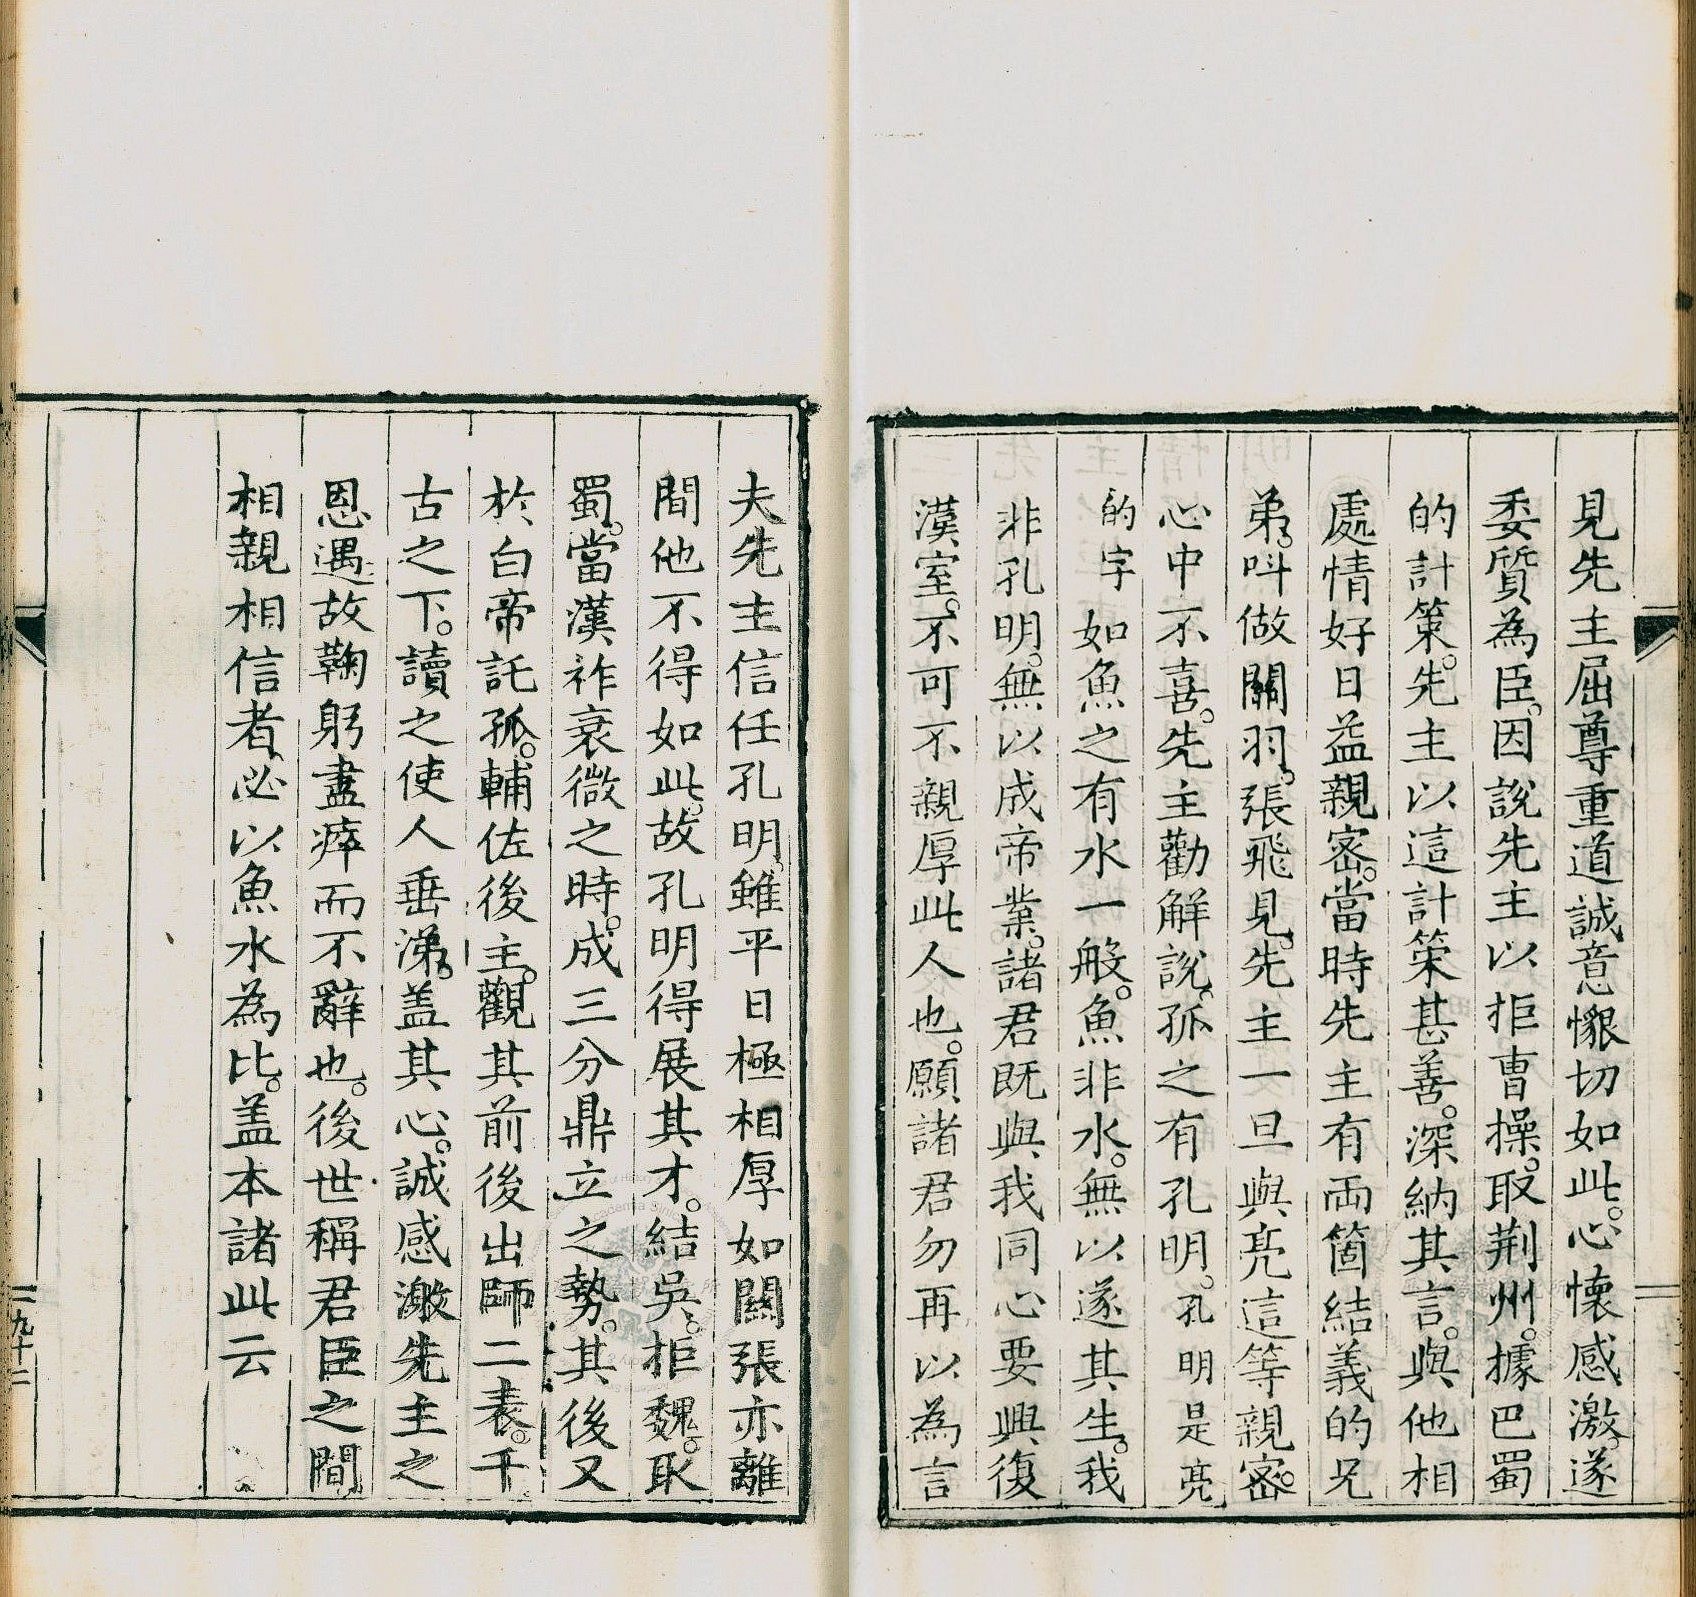 見先主屈尊重道誠意懇切如此。心懷感激。遂
委質為臣。因說先主以拒曹操。取荆州。據巴蜀
的計策。先主以這計策甚善。深納其言。與他相
處情好日益親密。當時先主有兩箇結義的兄
弟。呌做關羽。張飛見先主一旦與亮這等親密。
心中不喜。先主勸解說。孤之有孔明。孔明是亮
的字 如魚之有水一般。魚非水。無以遂其生。我
非孔明。無以成帝業。諸君既與我同心要興復
漢室。不可不親厚此人也。願諸君勿再以為言
夫先主信任孔明。雖平日極相厚如關張亦離
間他不得如此。故孔明得展其才。結吳。拒魏。取
蜀。當漢祚衰微之時。成三分鼎立之勢。其後又
於白帝託孤。輔佐後主。觀其前後出師二表。千
古之下。讀之使人垂涕。盖其心。誠感激先主之
恩遇故鞠躬盡瘁而不辭也。後世稱君臣之間
相親相信者必以魚水為比。盖本諸此云
九十二